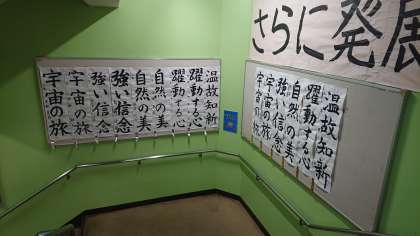 さらに発展
温故知新
躍動する心
自然の美
強い信念
宇宙の旅
宇宙の旅
温故知新
躍動する心
躍動する心
自然の美
自然の美
強い信念
強い信念
宇宙の旅
宇宙の旅